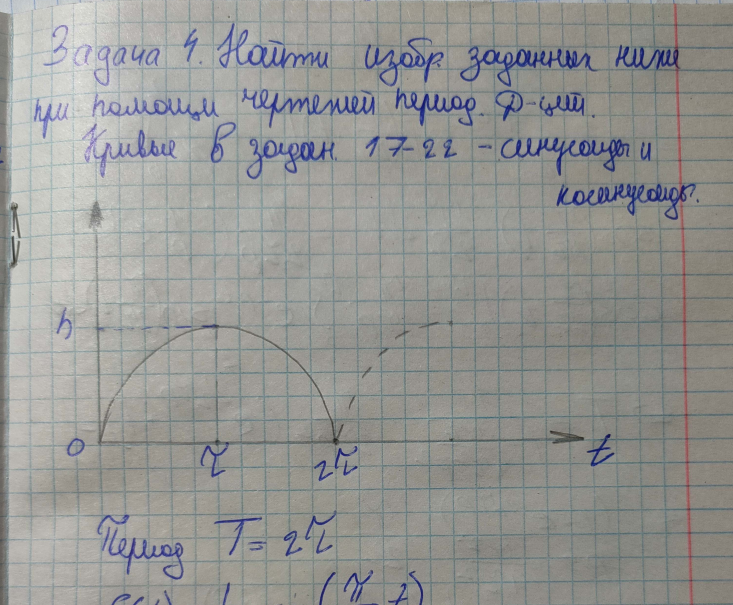 Задача 4. Найти изобр. заданных ниже
при помощи чертежей период. ф-ций.
Кривые в задан. 17-22 - синусоиды и
косинусоиды.
h
0
τ
2τ
t
Период T = 2τ